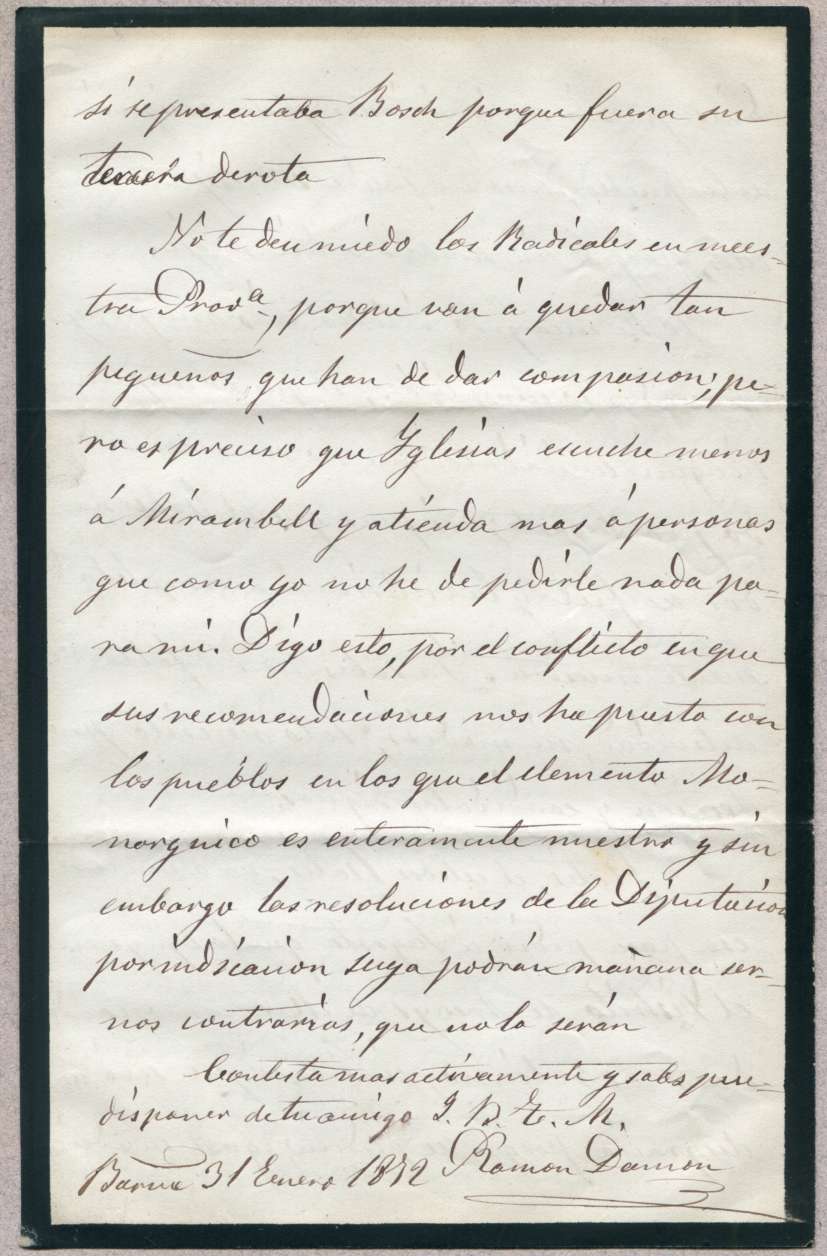 si se presentaba Bosch porque fuera su
tercera derota
No te den miedo los Radicales en nues-
tra Prov.a, porque van á quedar tan
pequeños que han de dar compasion; pe-
ro es preciso que Yglesias escuche menos
á Mirambell y atienda mas á personas
que como yo no he de pedirle nada pa-
ra mi. Digo esto, por el conflicto en que
sus recomendaciones nos ha puesto con
los pueblos en los que el elemento Mo-
narquico es enteramente nuestro y sin
embargo las resoluciones de la Diputacion
por indicacion suya podrán mañana ser-
nos contrarias, que no lo serán
Contesta mas activamente y sabes pue-
disponer de tu amigo
Barna 31 Enero 1872 Ramon Damon